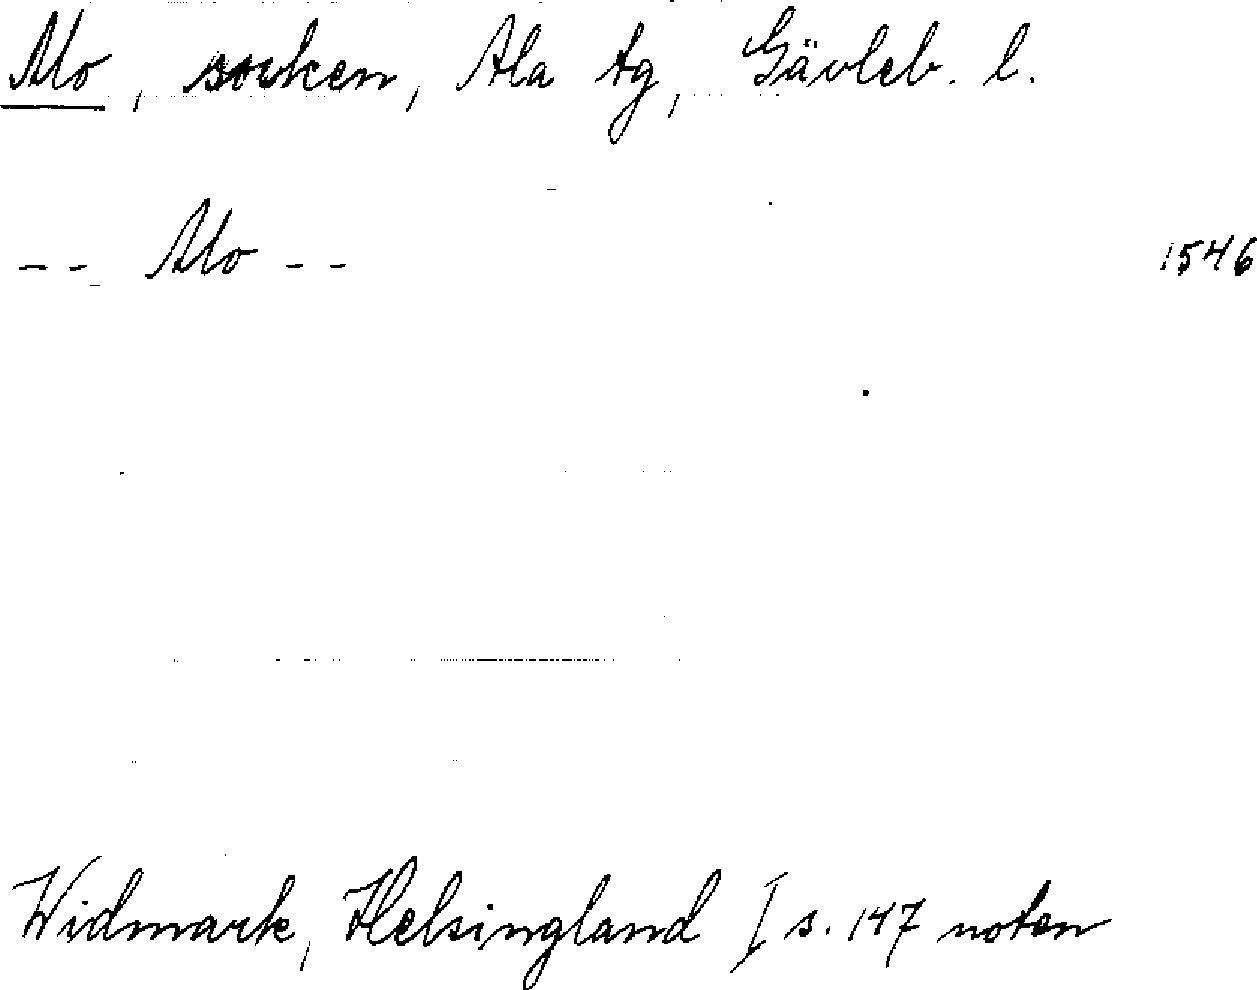 Mo, socken, Ala tg, Gävleb. l.
-- Mo -- 1546
Widmark, Helsingland I s. 147 noten